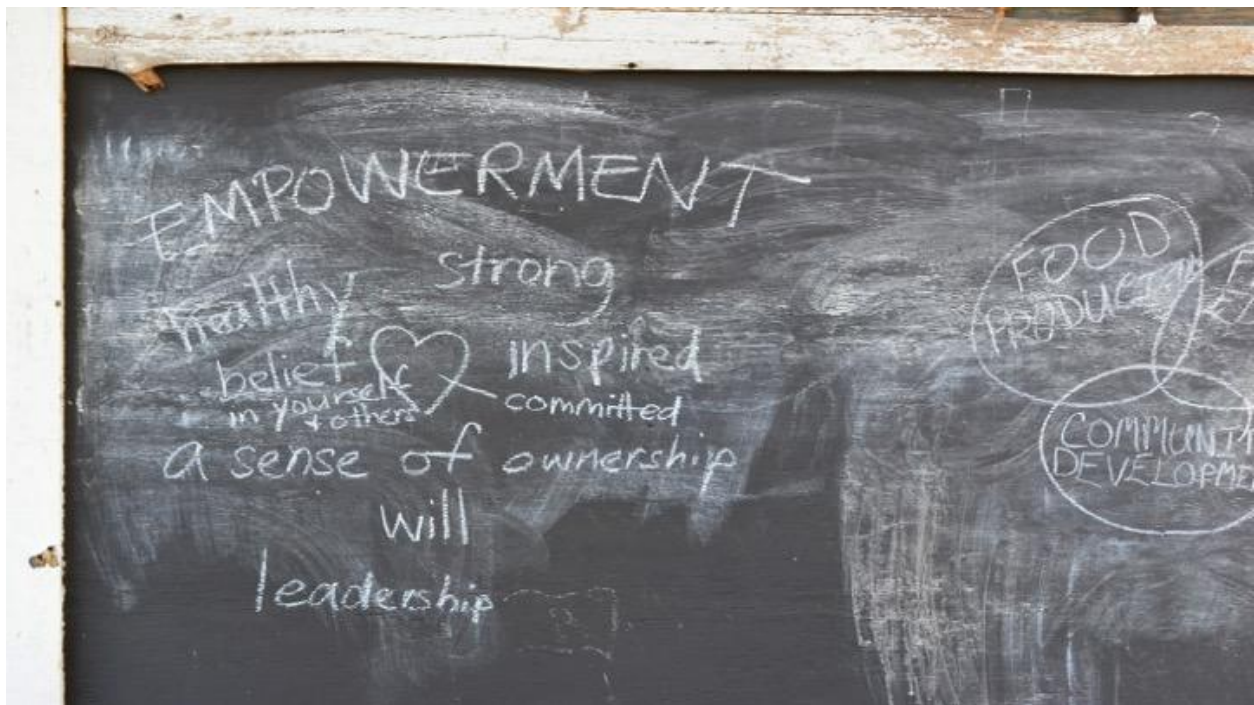 EMPOWERMENT
strong
healthy
belief
in yourself
+ others
inspired
committed
a sense of ownership
will
leadership
FOOD
PRODUCTION
COMMUNIT
DEVELOPME